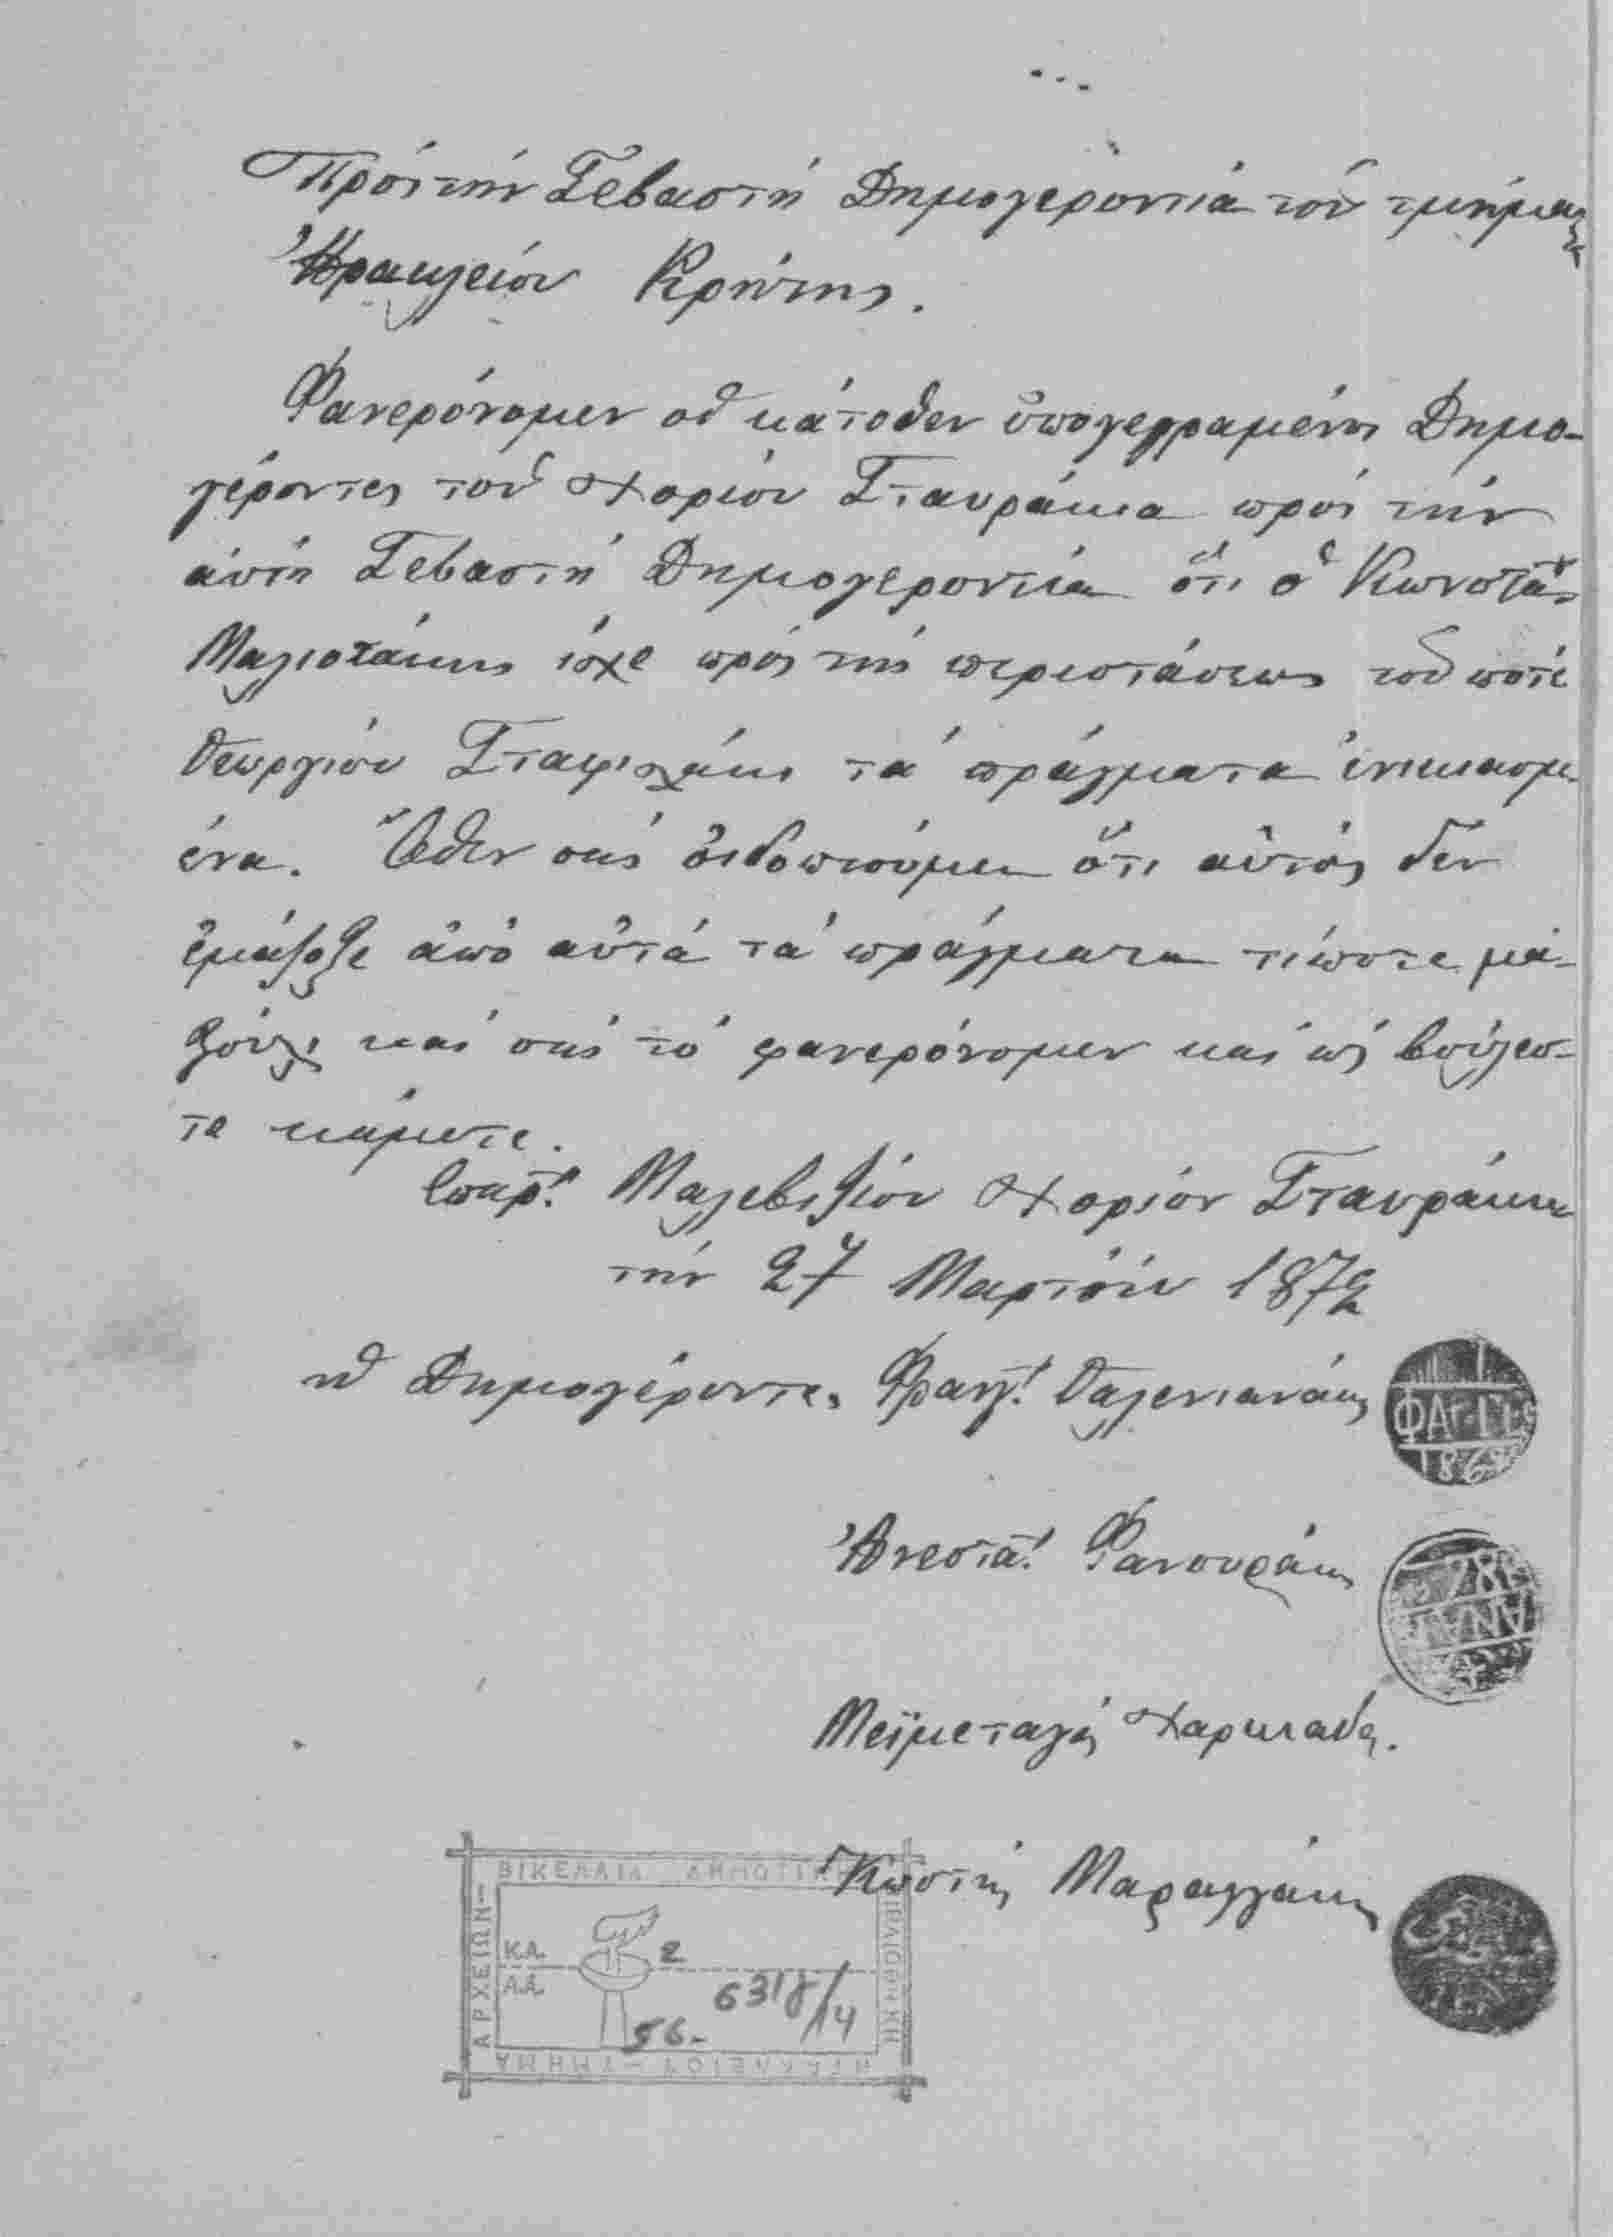 Πρός τήν Σεβαστή Δημογεροντιά τοῦ τμήματος
Ἡρακλείου Κρήτης.
Φανερόνομεν οἱ κάτοθεν ὑπογεγραμένοι Δημο-
γέροντες τοῦ χορίου Σταυράκια πρός τήν
αὐτή Σεβαστή Δημογεροντία ὅτι ὁ Κωνστα΄
Μαλιοτάκις ἰχε πρός τῆς περιστάσεως τοῦ ποτέ
Γεωργίου Σταφιλάκι τά πράγματα ἐνικιασμ-
ένα. Ὅθεν σᾶς ὀιδοπιούμεν ὅτι αὐτός δέν
ἐμάζοξε ἀπό αὐτά τά πράγματα τίποτε μά-
ξούλι καί σᾶς τό φανερόνομεν καί ὡς βούλεσ-
τε κάμετε.
Ἐπαρ: Μαλεβιζίου χορίον Σταυράκια
τήν 27 Μαρτίου 1872
οἱ Δημογέροντες Φραγ: Γαλενιανάκις
ΦΑΓ·ΓΛ
1868
Ἀνεστα: Φανουράκις
187
ΑΝΑΓ
Μεϊμεταγᾶς Χαρκιαδς.
Κωστής Μαραγγάκις
ΒΙΚΕΛΑΙΑ ΔΗΜΟΤΙΚΗ
ΒΙΒΛΙΟΘΗΚΗ
ΗΡΑΚΛΕΙΟΥ - ΤΜΗΜΑ
ΑΡΧΕΙΩΝ
Κ.Α. 2
Α.Α. 631γ/14
56-